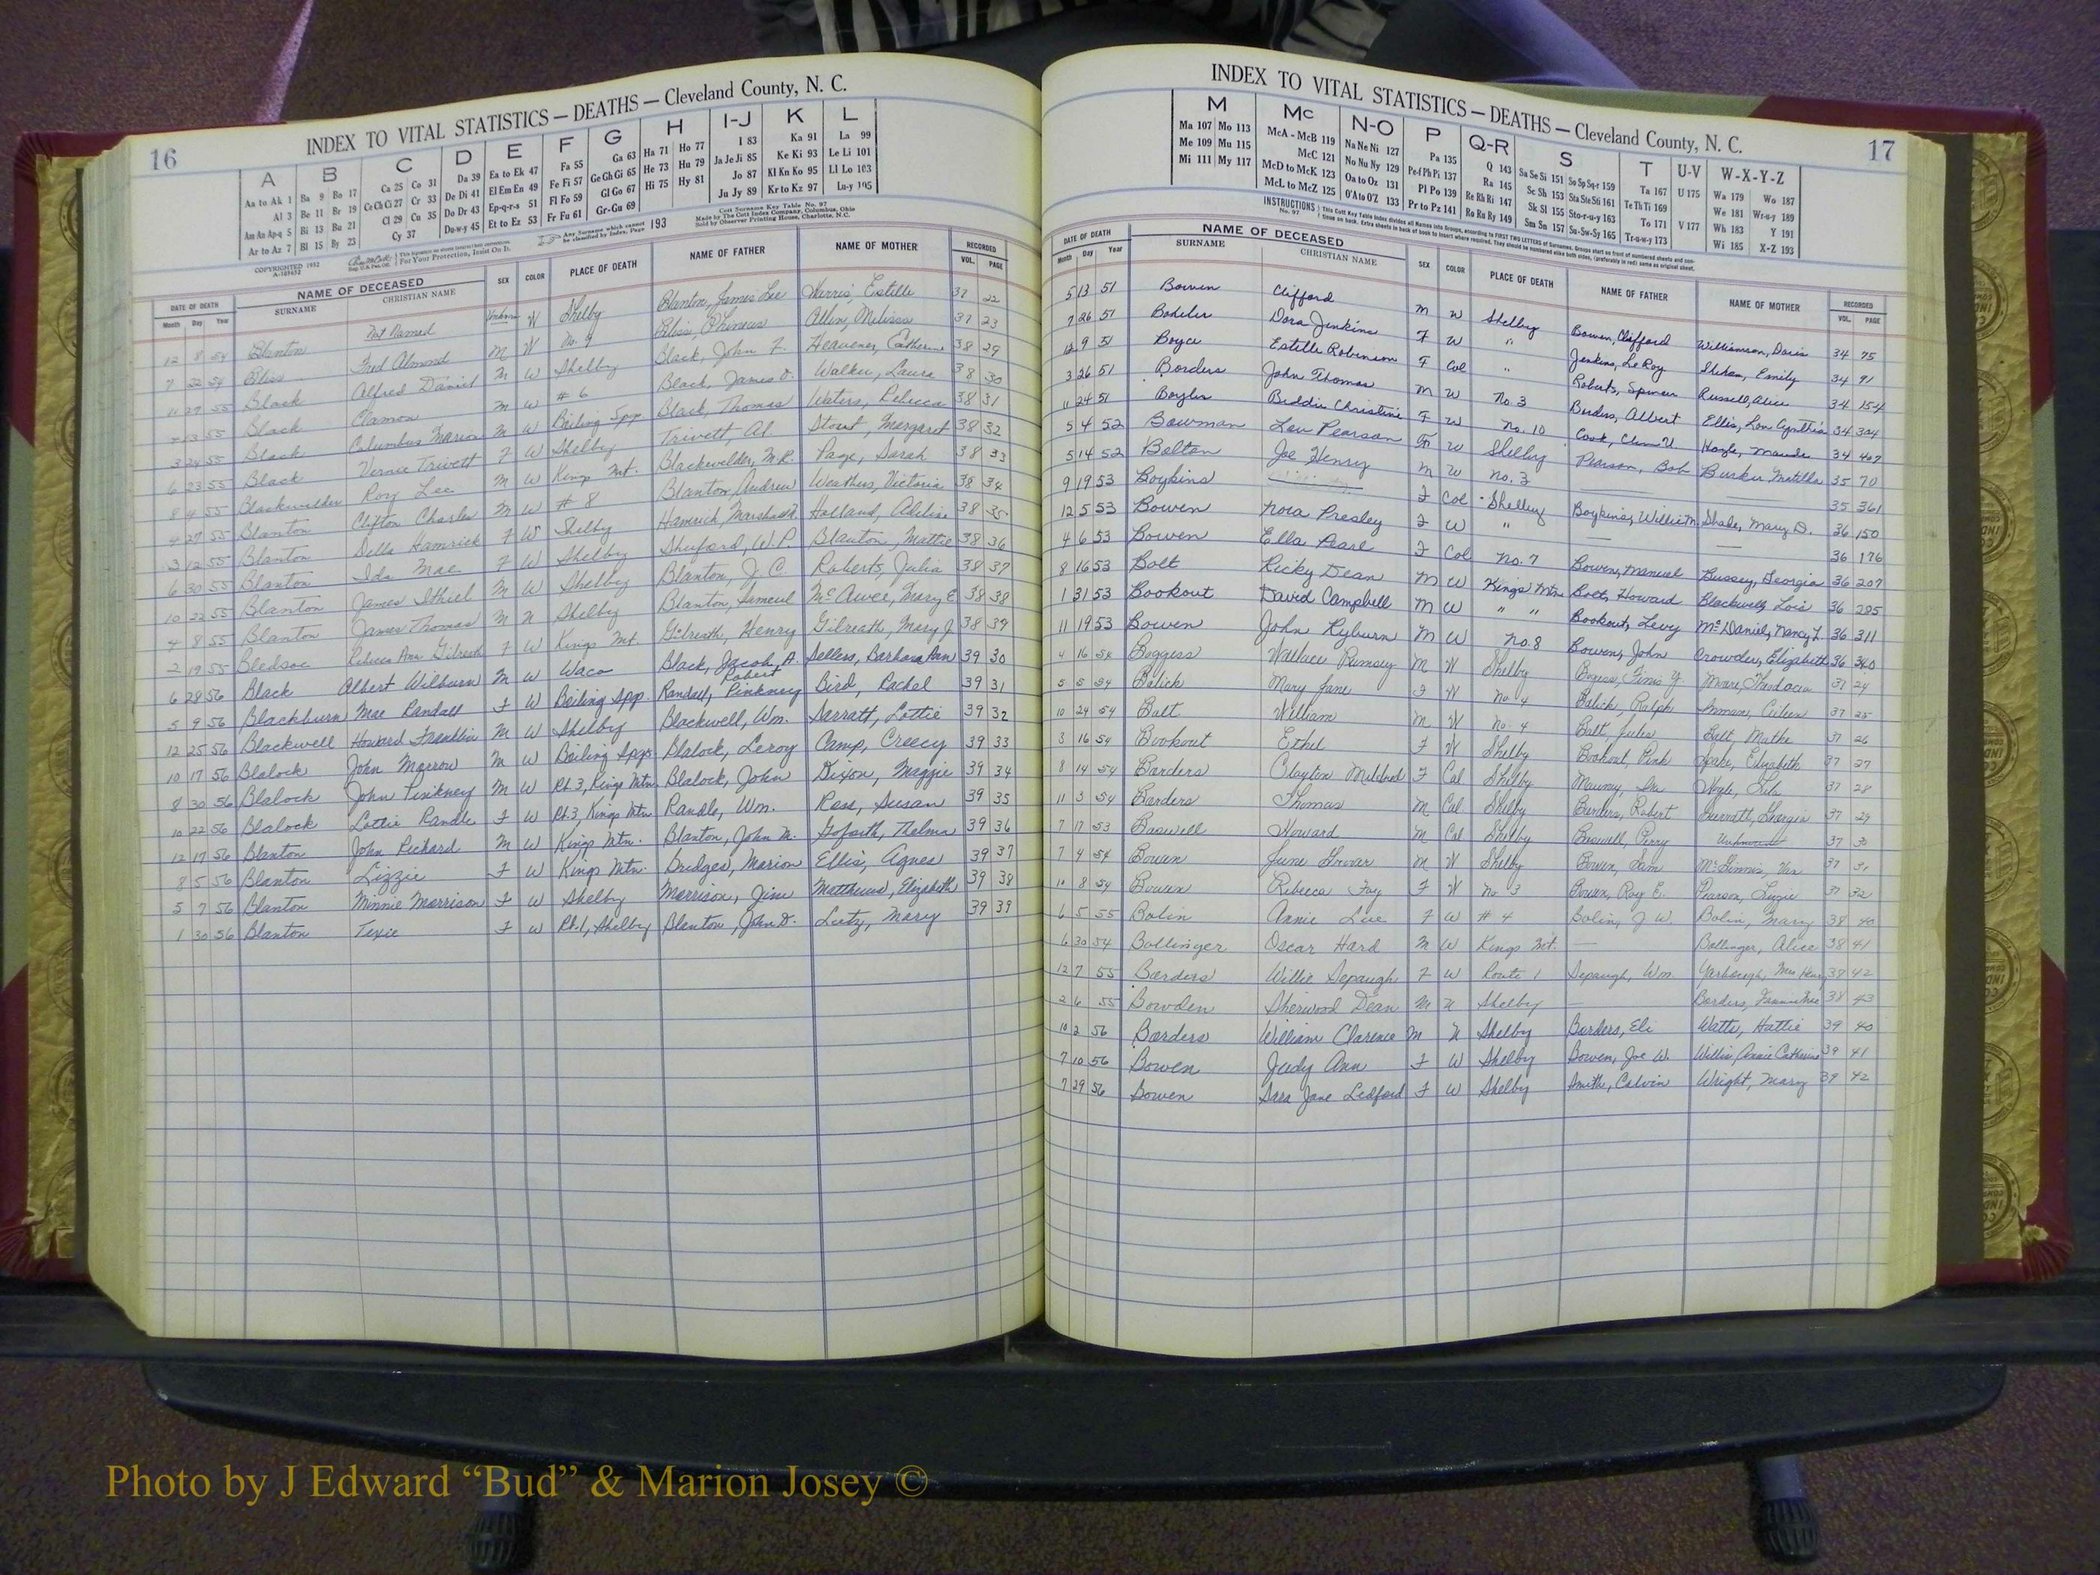 16
INDEX TO VITAL STATISTICS — DEATHS — Cleveland County, N. C.
A B C D E F G H I-J K L
Aa to Ak 1 Ba 9 Bo 17 Ca 25 Co 31 Da 39 Ea to Ek 47 Fa 55 Ga 63 Ha 71 Ho 77 I 83 Ka 91 La 99
Al 3 Be 11 Br 19 Ce Ch Ci 27 Cr 33 De Di 41 El Em En 49 Fe Fi 57 Ge Gh Gi 65 He 73 Hu 79 Ja Je Ji 85 Ke Ki 93 Le Li 101
Am An Ap-q 5 Bi 13 Bu 21 Cl 29 Cu 35 Do Dr 43 Ep-q-r-s 51 Fl Fo 59 Gl Go 67 Hi 75 Hy 81 Jo 87 Kl Kn Ko 95 Ll Lo 103
Ar to Az 7 Bl 15 By 23 Cy 37 Du-w-y 45 Et to Ez 53 Fr Fu 61 Gr-Gu 69 Ju Jy 89 Kr to Kz 97 Lu-y 105
COPYRIGHTED 1952
For Your Protection, Insist On It.
Any Surname which cannot be classified by Index, Page 193
Cott Surname Key Table No. 97
Made by The Cott Index Company, Columbus, Ohio
Sold by Observer Printing House, Charlotte, N.C.
DATE OF DEATH NAME OF DECEASED SEX COLOR PLACE OF DEATH NAME OF FATHER NAME OF MOTHER RECORDED
Month Day Year SURNAME CHRISTIAN NAME VOL. PAGE
12 8 54 Blanton Not Named Unknown W Shelby Blanton, James Lee Harris, Estelle 37 22
7 22 54 Bliss Fred Almond M W No. 9 Bliss, Phineas Allen, Melissa 37 23
11 29 55 Black Alfred Daniel M W Shelby Black, John F. Heavener, Catherine 38 29
13 55 Black Clamon M W # 6 Black, James D. Walker, Laura 38 30
3 24 55 Black Columbus Marion M W Boiling Spgs Black, Thomas Waters, Rebecca 38 31
6 23 55 Black Vernie Trivett F W Shelby Trivett, Al. Stout, Margaret 38 32
8 4 55 Blackwelder Roy Lee M W Kings Mt. Blackwelder, M.R. Page, Sarah 38 33
4 27 55 Blanton Clifton Charles M W # 8 Blanton, Andrew Weathers, Victoria 38 34
3 12 55 Blanton Della Hamrick F W Shelby Hamrick, Marshall Holland, Adeline 38 35
6 30 55 Blanton Ida Mae F W Shelby Shuford, W.P. Blanton, Mattie 38 36
10 22 55 Blanton James Ithiel M W Shelby Blanton, J. C. Roberts, Julia 38 37
4 8 55 Blanton James Thomas M N Shelby Blanton, Samuel McAwee, Mary E 38 38
2 19 55 Bledsoe Rebecca Ann Gilreath F W Kings Mt. Gilreath, Henry Gilreath, Mary J. 38 39
6 28 56 Black Albert Welburn M W Waco Black, Jacob A. Sellers, Barbara Ann 39 30
5 9 56 Blackburn Mae Randall F W Boiling Spg. Randall, Robert Pinkney Bird, Rachel 39 31
12 25 56 Blackwell Howard Franklin M W Shelby Blackwell, Wm. Sarratt, Lottie 39 32
10 17 56 Blalock John Morrow M W Boiling Spgs Blalock, Leroy Camp, Creecy 39 33
8 30 56 Blalock John Pinkney M W Rt. 3, Kings Mtn. Blalock, John Dixon, Maggie 39 34
10 22 56 Blalock Lottie Randle F W Rt. 3, Kings Mtn Randle, Wm. Ross, Susan 39 35
12 17 56 Blanton John Richard M W Kings Mtn. Blanton, John M. Goforth, Thelma 39 36
8 5 56 Blanton Lizzie F W Kings Mtn. Bridges, Marion Ellis, Agnes 39 37
5 7 56 Blanton Minnie Morrison F W Shelby Morrison, Jim Matthews, Elizabeth 39 38
1 30 56 Blanton Texie F W Rt. 1, Shelby Blanton, John D. Lutz, Mary 39 39
INDEX TO VITAL STATISTICS — DEATHS — Cleveland County, N. C.
17
M Mc N-O P Q-R S T U-V W-X-Y-Z
Ma 107 Mo 113 McA - McB 119 Na Ne Ni 127 Pa 135 Q 143 Sa Se Si 151 So Sp Sq-r 159 Ta 167 U 175 Wa 179 Wo 187
Me 109 Mu 115 McC 121 No Nu Ny 129 Pe-f Ph Pi 137 Ra 145 Sc Sh 153 Sta Ste Sti 161 Te Th Ti 169 We 181 Wr-u-y 189
Mi 111 My 117 McD to McK 123 Oa to Oz 131 Pl Po 139 Re Rh Ri 147 Sk Sl 155 Sto-r-u-y 163 To 171 V 177 Wh 183 Y 191
McL to McZ 125 O'A to O'Z 133 Pr to Pz 141 Ro Ru Ry 149 Sm Sn 157 Su-Sw-Sy 165 Tr-u-w-y 173 Wi 185 X-Z 193
INSTRUCTIONS No. 97
DATE OF DEATH NAME OF DECEASED SEX COLOR PLACE OF DEATH NAME OF FATHER NAME OF MOTHER RECORDED
Month Day Year SURNAME CHRISTIAN NAME VOL. PAGE
5 13 51 Bowen Clifford M W Shelby Bowen, Clifford Williamson, Doris 34 75
7 26 51 Boheler Dora Jenkins F W " Jenkins, LeRoy Emily 34 91
12 9 51 Boyce Estelle Robinson F Col " Roberts, Spencer Russell, Alice 34 154
3 26 51 Borders John Thomas M W No. 3 Borders, Albert Ellis, Lou Cynthia 34 304
11 24 51 Boyles Biddie Christine F W No. 10 Cook, Hoyle, Maude 34 407
5 4 52 Bowman Lou Pearson F W Shelby Pearson, Bob Matilda 35 70
5 14 52 Bolton Joe Henry M W No. 3 — — 35 361
9 19 53 Boykins F Col Shelby Boykins, Willie M. Mary D. 36 150
12 5 53 Bowen Nora Presley F W " — 36 176
4 6 53 Bowen Ella Pearl F Col No. 7 Bowen, Manuel Bussey, Georgia 36 207
8 16 53 Bolt Ricky Dean M W Kings Mtn Bolt, Howard Blackwell, Lois 36 285
1 31 53 Bookout David Campbell M W " " Bookout, Levy McDaniel, Nancy L. 36 311
11 19 53 Bowen John Ryburn M W No. 8 Bowen, John Crowder, Elizabeth 36 340
4 16 54 Boggess Wallace Rumsey M W Shelby Moore, Theodocia 37 24
5 5 54 Bolick Mary Jane F W No. 4 Bolick, Ralph Inman, Eileen 37 25
10 24 54 Bolt William M W No. 4 Bolt, Jules 37 26
3 16 54 Bookout Ethel F W Shelby Bookout, Pink Elizabeth 37 27
8 14 54 Borders Clayton Mildred F Col Shelby Mauney, Hoyle, 37 28
11 3 54 Borders Thomas M Col Shelby Borders, Robert Georgia 37 29
7 17 53 Boswell Howard M Col Shelby Boswell, Perry Unknown 37 30
7 4 54 Bowen June M W Shelby Bowen, Sam McGinnis, 37 31
10 8 54 Bowen Rebecca Fay F W No 3 Bowen, Roy E. Pearson, Lizzie 37 32
6 5 55 Bolin Annie Lue F W # 4 Bolin, J W. Bolin, Mary 38 40
6 30 54 Bollinger Oscar Hard M W Kings Mt. — Bollinger, Alice 38 41
12 7 55 Borders Willie Sepaugh F W Route 1 Sepaugh, Wm. Yarborough, 38 42
2 6 55 Bowden Sherwood Dean M N Shelby — Borders, Fannie Mae 38 43
10 2 56 Borders William Clarence M N Shelby Borders, Eli Watts, Hattie 39 40
7 10 56 Bowen Judy Ann F W Shelby Bowen, Joe W. Willis, Annie Catherine 39 41
7 29 56 Bowen Sara Jane Ledford F W Shelby Smith, Calvin Wright, Mary 39 42
Photo by J Edward “Bud” & Marion Josey ©